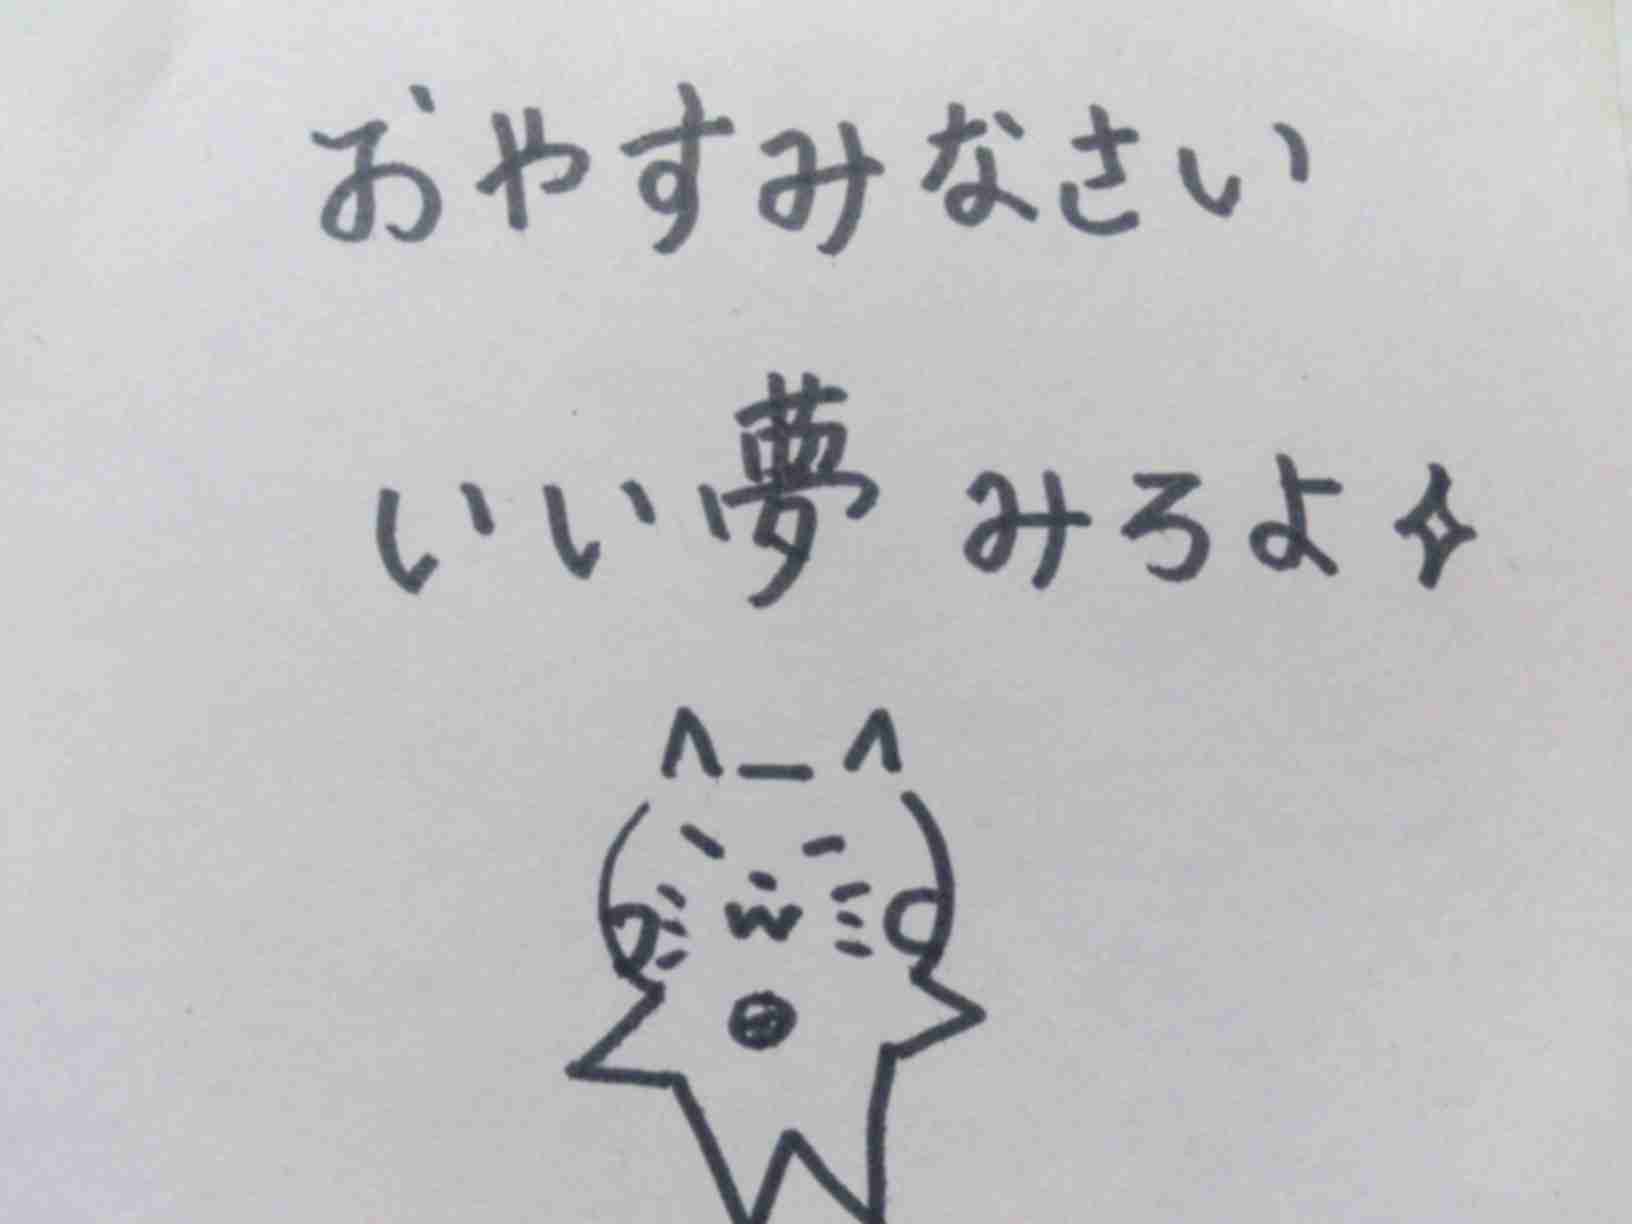 おやすみなさい
いい夢みろよ✧